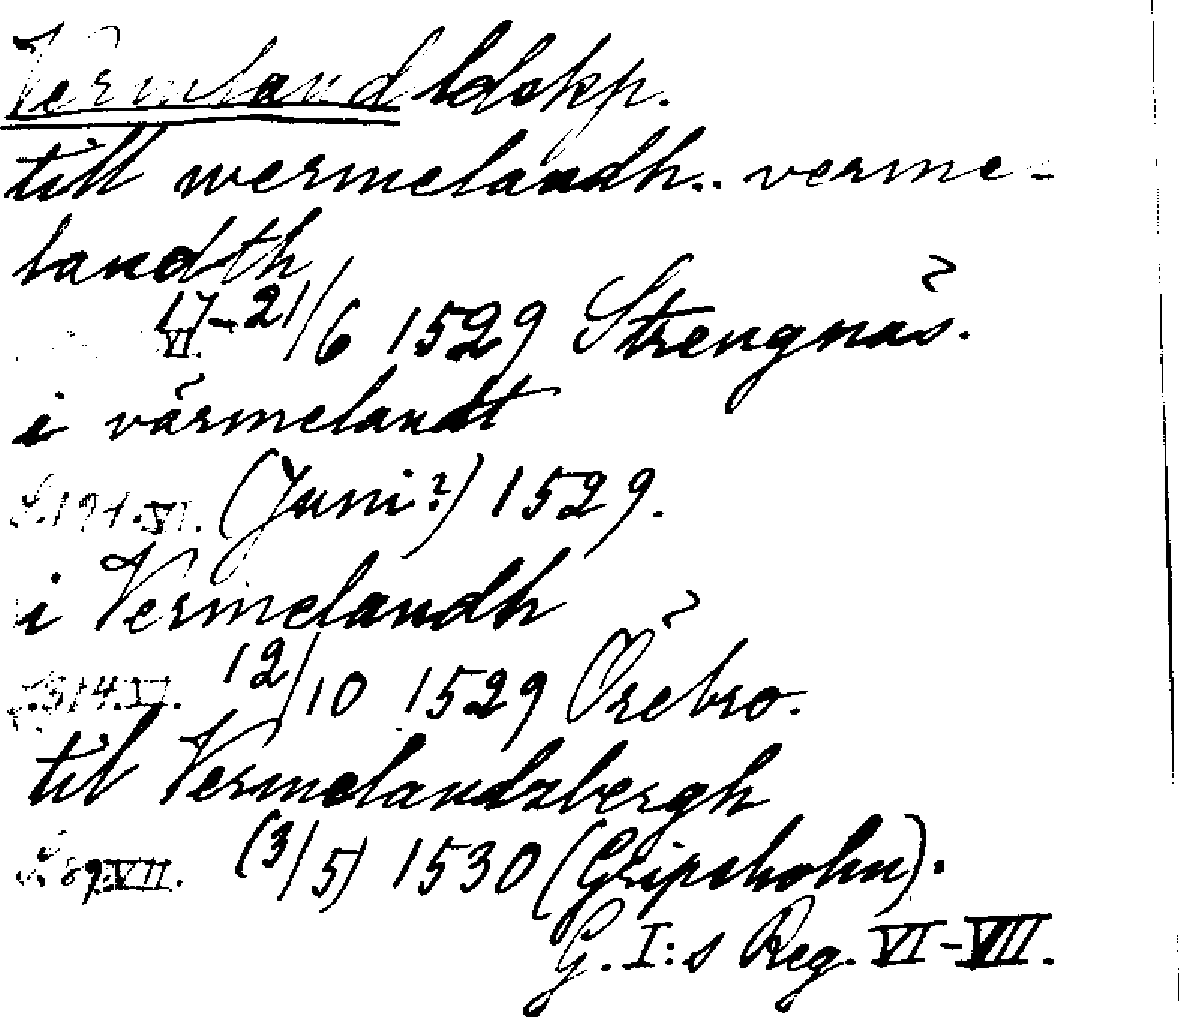 Vermland ldskp.
till wermelandh.. verme-
landth
VI. 17-21/6 1529 Strengnäs.
i värmelandt
S. 191. VI. (Juni?) 1529.
i Vermelandh
S. 314. VI. 12/10 1529 Örebro.
til Vermelandzbergh
S. 89. VII. (3/5) 1530 (Gripsholm).
G. I:s Reg. VI-VII.